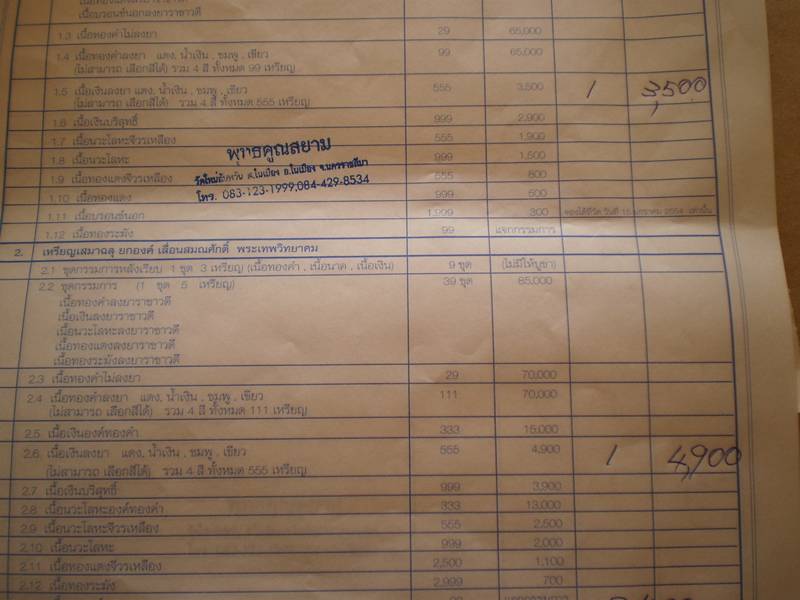 เนื้อบรอนซ์นอกลงยาราชาวดี
1.3 เนื้อทองคำไม่ลงยา 29 65,000
1.4 เนื้อทองคำลงยา แดง, น้ำเงิน, ชมพู, เขียว 99 65,000
(ไม่สามารถ เลือกสีได้) รวม 4 สี ทั้งหมด 99 เหรียญ
1.5 เนื้อเงินลงยา แดง, น้ำเงิน, ชมพู, เขียว 555 3,500 1 3,500
(ไม่สามารถ เลือกสีได้) รวม 4 สี ทั้งหมด 555 เหรียญ
1.6 เนื้อเงินบริสุทธิ์ 999 2,900
1.7 เนื้อนวะโลหะจีวรเหลือง 555 1,900
1.8 เนื้อนวะโลหะ 999 1,500
1.9 เนื้อทองแดงจีวรเหลือง 555 800
1.10 เนื้อทองแดง 999 500
1.11 เนื้อบรอนซ์นอก 1,999 300
1.12 เนื้อทองระฆัง 99 แจกกรรมการ
พุทธคูณสยาม
อ.โนเมือง จ.นครราชสีมา
โทร. 083-123-1999,084-429-8534
2. เหรียญเสมาฉลุ ยกองค์ เลื่อนสมณศักดิ์ พระเทพวิทยาคม
2.1 ชุดกรรมการหลังเรียบ 1 ชุด 3 เหรียญ (เนื้อทองคำ, เนื้อนาค, เนื้อเงิน) 9 ชุด (ไม่มีให้บูชา)
2.2 ชุดกรรมการ (1 ชุด 5 เหรียญ) 39 ชุด 85,000
เนื้อทองคำลงยาราชาวดี
เนื้อเงินลงยาราชาวดี
เนื้อนวะโลหะลงยาราชาวดี
เนื้อทองแดงลงยาราชาวดี
เนื้อทองระฆังลงยาราชาวดี
2.3 เนื้อทองคำไม่ลงยา 29 70,000
2.4 เนื้อทองคำลงยา แดง, น้ำเงิน, ชมพู, เขียว 111 70,000
(ไม่สามารถ เลือกสีได้) รวม 4 สี ทั้งหมด 111 เหรียญ
2.5 เนื้อเงินองค์ทองคำ 333 15,000
2.6 เนื้อเงินลงยา แดง, น้ำเงิน, ชมพู, เขียว 555 4,900 1 4,900
(ไม่สามารถ เลือกสีได้) รวม 4 สี ทั้งหมด 555 เหรียญ
2.7 เนื้อเงินบริสุทธิ์ 999 3,900
2.8 เนื้อนวะโลหะองค์ทองคำ 333 13,000
2.9 เนื้อนวะโลหะจีวรเหลือง 555 2,500
2.10 เนื้อนวะโลหะ 999 2,000
2.11 เนื้อทองแดงจีวรเหลือง 2,500 1,100
2.12 เนื้อทองระฆัง 2,999 700